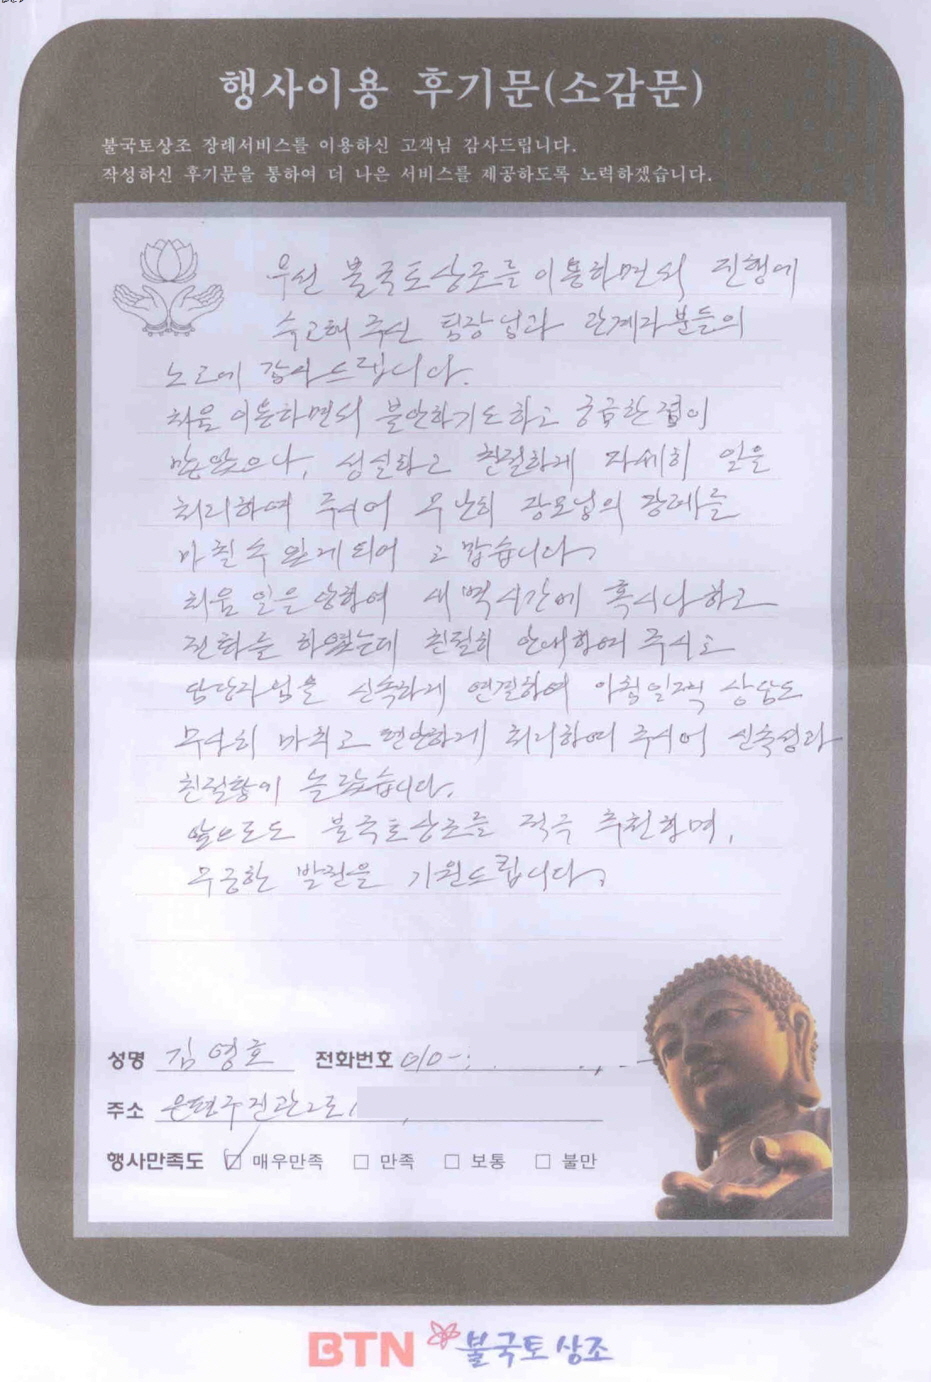 행사이용 후기문(소감문)
불국토상조 장례서비스를 이용하신 고객님 감사드립니다.
작성하신 후기문을 통하여 더 나은 서비스를 제공하도록 노력하겠습니다.
우선 불국토상조를 이용하면서 진행에
수고해 주신 팀장님과 관계자분들의
노고에 감사드립니다.
처음 이용하면서 불안하기도하고 궁금한 점이
많았으나, 성실하고 친절하게 자세히 일을
처리하여 주시어 무난히 장모님의 장례를
마칠수 있게되어 고맙습니다.
처음 일을당하여 새벽시간에 혹시나하고
전화를 하였는데 친절히 안내하여 주시고
담당자업을 신속하게 연결하여 아침일찍 상담도
무사히 마치고 편안하게 처리하여 주시어 신속성과
친절함에 놀랐습니다.
앞으로도 불국토상조를 적극 추천하며,
무궁한 발전을 기원드립니다.
성명 김영호 전화번호 010-
주소 은평구진관2로
행사만족도 ☑ 매우만족 □ 만족 □ 보통 □ 불만
BTN 불국토상조